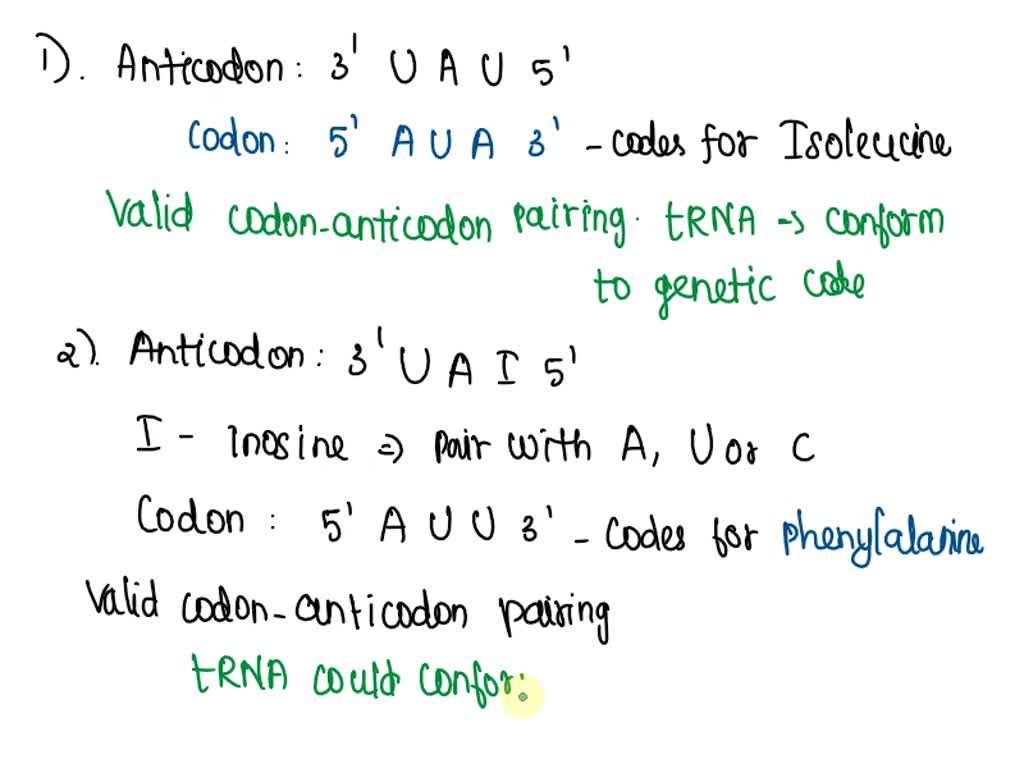 1). Anticodon: 3' U A U 5'
Codon: 5' A U A 3' - codes for Isoleucine
Valid codon-anticodon pairing. tRNA → conform
to genetic code
2). Anticodon: 3' U A I 5'
I - Inosine ⇒ pair with A, U or C
Codon : 5' A U U 3' - codes for phenylalanine
Valid codon-anticodon pairing
tRNA could confor